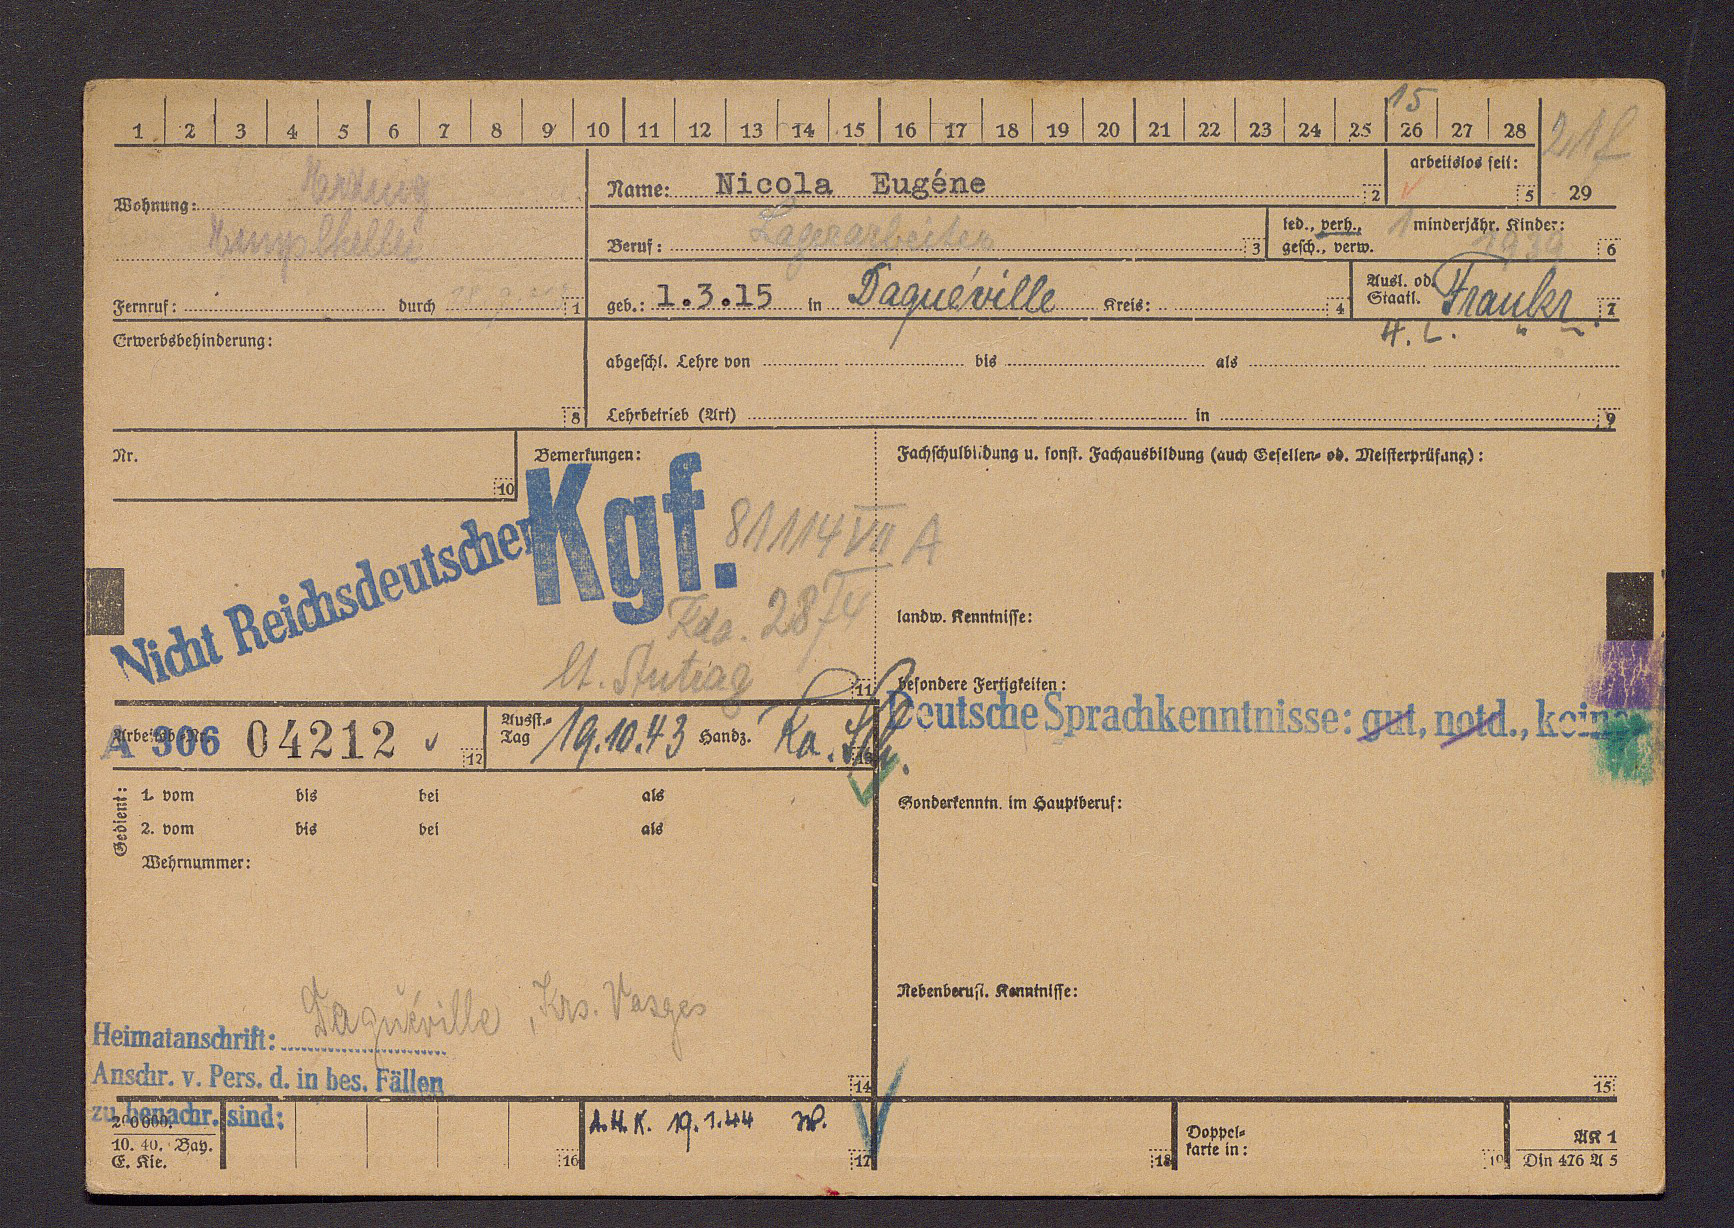 1 2 3 4 5 6 7 8 9 10 11 12 13 14 15 16 17 18 19 20 21 22 23 24 25 26 27 28
15
arbeitslos seit:
5
29
Wohnung:
Fernruf: durch
1
Name: Nicola Eugéne
2
Beruf: Lagerarbeiter
3
led., verh.,
gesch., verw.
1 minderjähr. Kinder:
1939
6
geb.: 1.3.15 in Daquéville Kreis:
4
Ausl. od.
Staatl.
Frankr.
7
H. L. " "
Erwerbsbehinderung:
8
abgeschl. Lehre von bis als
Lehrbetrieb (Art) in
9
Nr.
10
Bemerkungen:
Kgf.
Nicht Reichsdeutscher
81114 VII A
Kdo. 2874
lt. Antrag
11
Fachschulbildung u. sonst. Fachausbildung (auch Gesellen- od. Meisterprüfung):
landw. Kenntnisse:
besondere Fertigkeiten:
Deutsche Sprachkenntnisse: gut, notd., keine
Arbeitsb.-Nr.
A 306 04212
12
Ausst.-
Tag
19.10.43 Handz.
13
Gedient:
1. vom bis bei als
2. vom bis bei als
Wehrnummer:
Sonderkenntn. im Hauptberuf:
Nebenberufl. Kenntnisse:
Daquéville, Krs. Vosges
Heimatanschrift:
Anschr. v. Pers. d. in bes. Fällen
zu benachr. sind:
14
15
200 000.
10. 40. Bay.
E. Kie.
16
A.H.K. 19.1.44 W.
17
18
Doppel-
karte in:
19
AK 1
Din 476 A 5